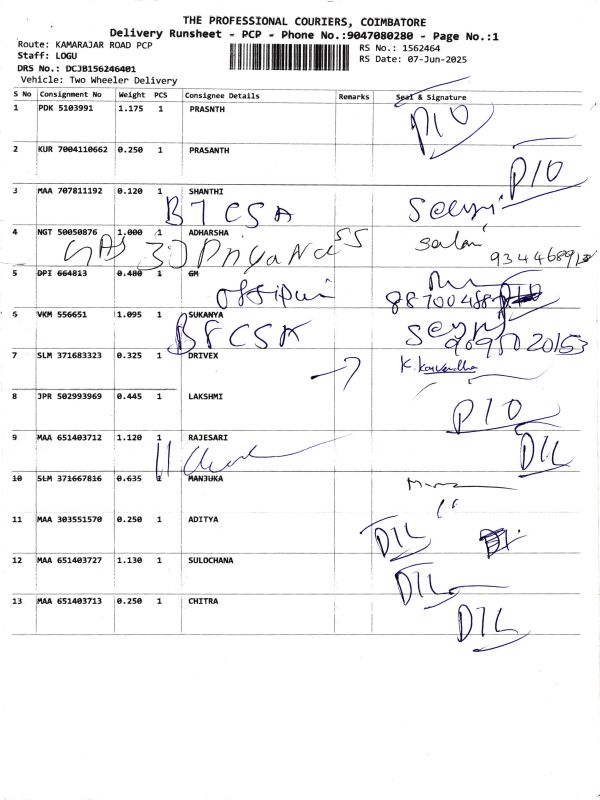 THE PROFESSIONAL COURIERS, COIMBATORE
Delivery Runsheet - PCP - Phone No.:9047080280 - Page No.:1
Route: KAMARAJAR ROAD PCP
Staff: LOGU
DRS No.: DCJB156246401
Vehicle: Two Wheeler Delivery
RS No.: 1562464
RS Date: 07-Jun-2025
S No Consignment No Weight PCS Consignee Details Remarks Seal & Signature
1 PDK 5103991 1.175 1 PRASNTH P10
2 KUR 7004110662 0.250 1 PRASANTH P10
3 MAA 707811192 0.120 1 SHANTHI
4 NGT 50050876 1.000 1 ADHARSHA
9344689
5 DPI 664813 0.480 1 GM
6 VKM 556651 1.095 1 SUKANYA
9095020153
7 SLM 371683323 0.325 1 DRIVEX
8 JPR 502993969 0.445 1 LAKSHMI P10
9 MAA 651403712 1.120 1 RAJESARI D1L
10 SLM 371667816 0.635 1 MANJUKA
11 MAA 303551570 0.250 1 ADITYA D1L
12 MAA 651403727 1.130 1 SULOCHANA D1L
13 MAA 651403713 0.250 1 CHITRA D1L